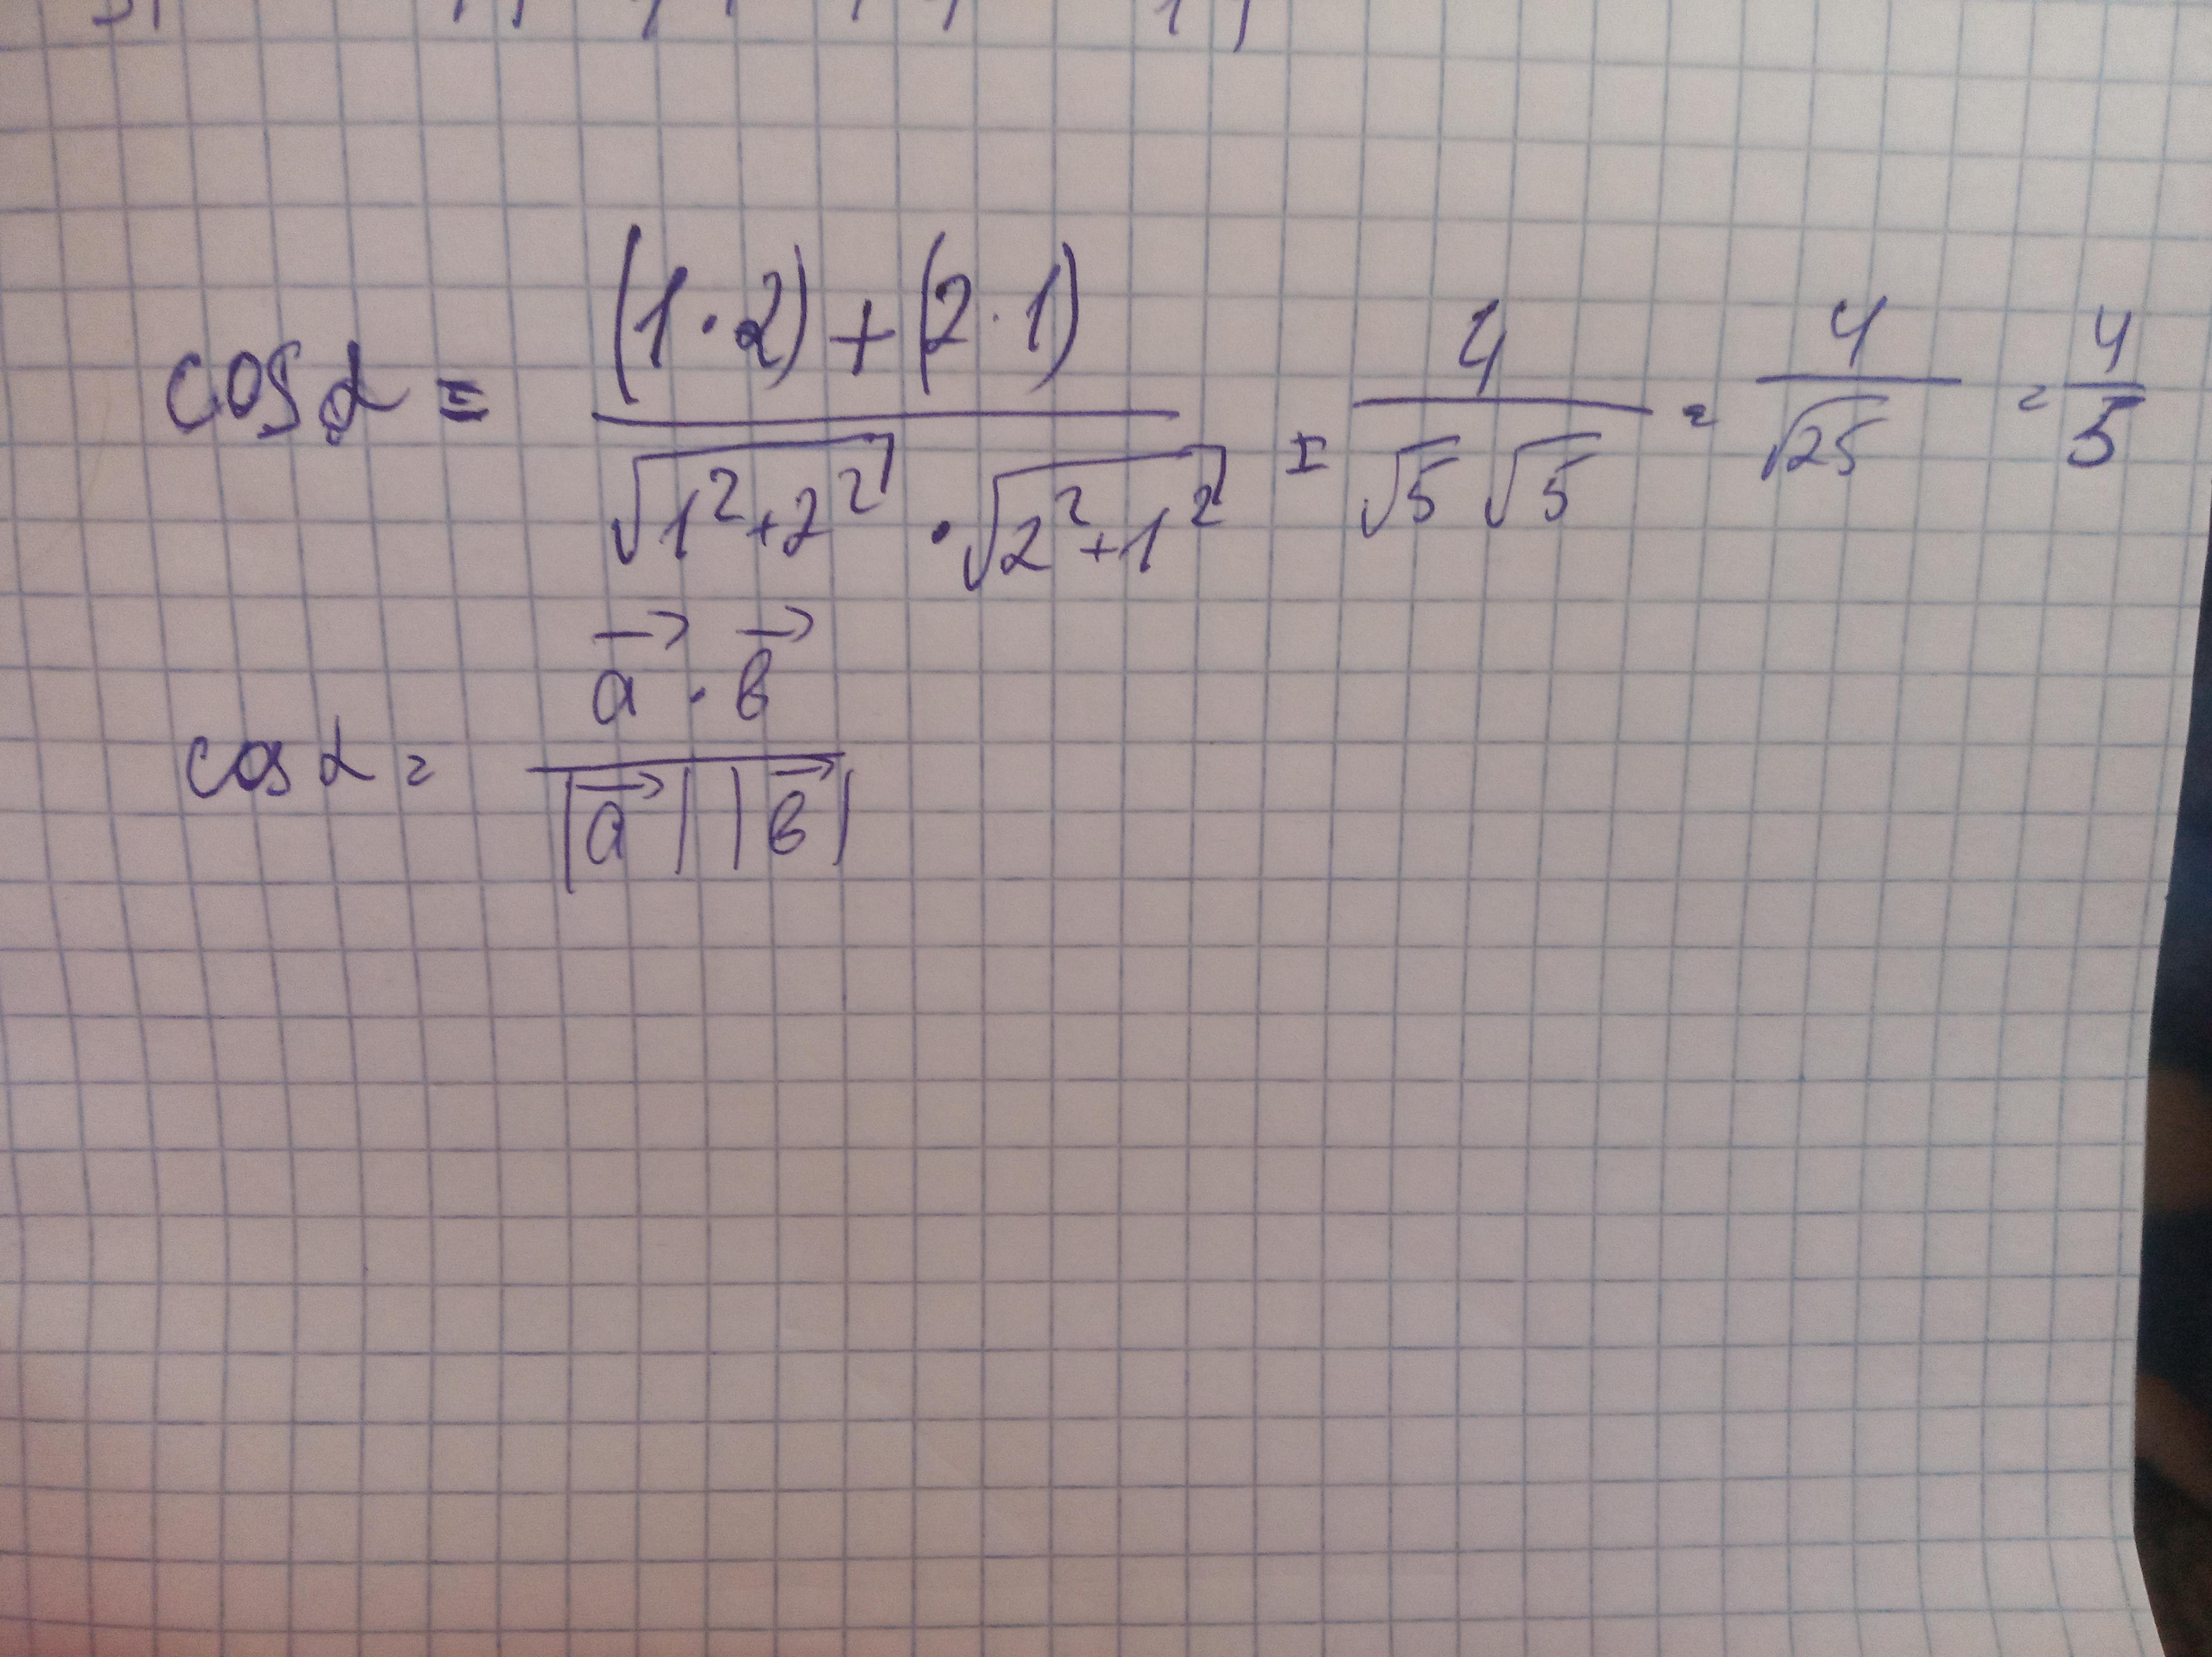 cos α = ((1·2)+(2·1))/(√(1²+2²)·√(2²+1²)) = 4/(√5 √5) = 4/√25 = 4/5
cos α = (a⃗ · в⃗)/(|a⃗| |в⃗|)